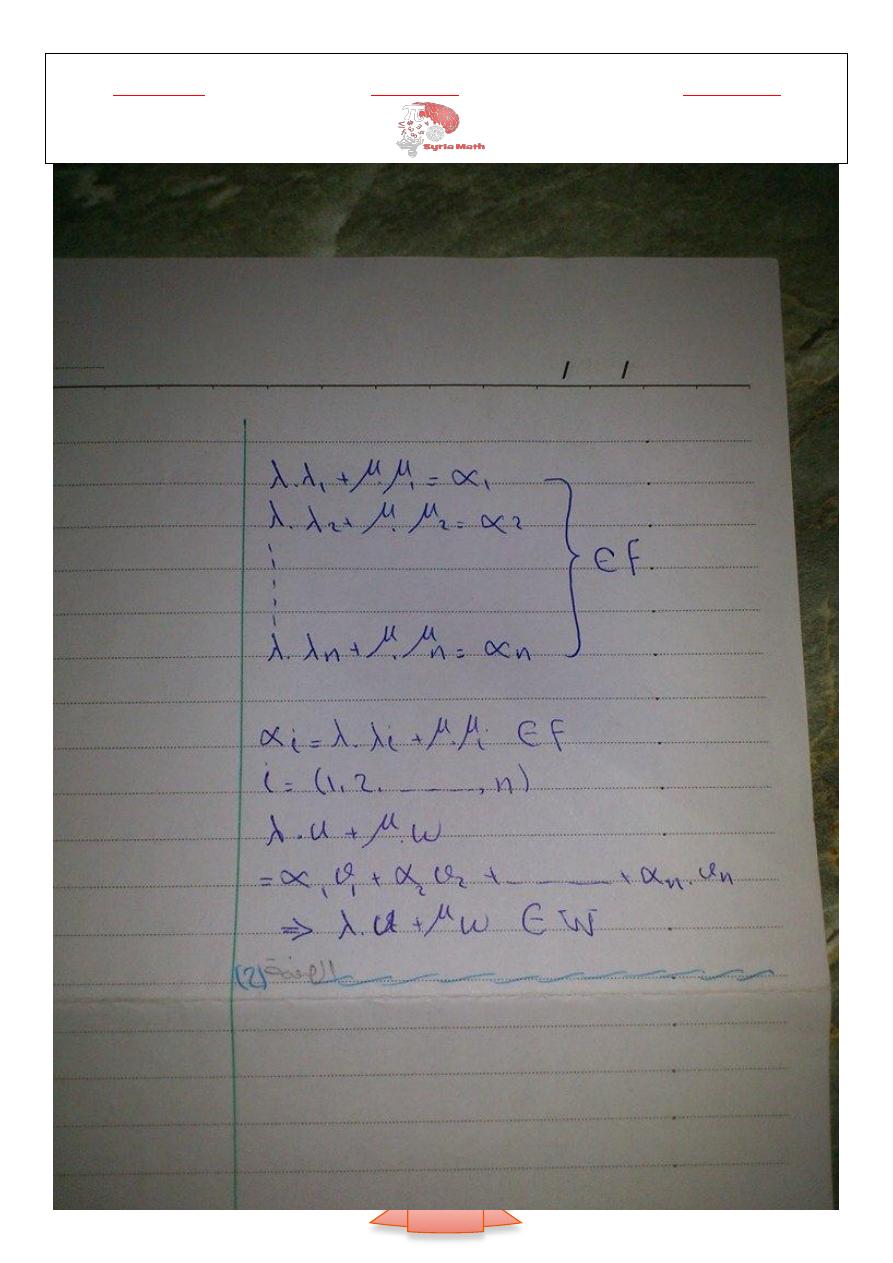 Syria Math
/ /
λ.λ₁ + μ.μ₁ = α₁
λ.λ₂ + μ.μ₂ = α₂
} ∈ F
λ.λn + μ.μn = αn
αi = λ.λi + μ.μi ∈ F
i = (1, 2, ......, n)
λ.u + μ.w
= α₁v₁ + α₂v₂ + ...... + αn.vn
⇒ λ.u + μw ∈ W
(2)